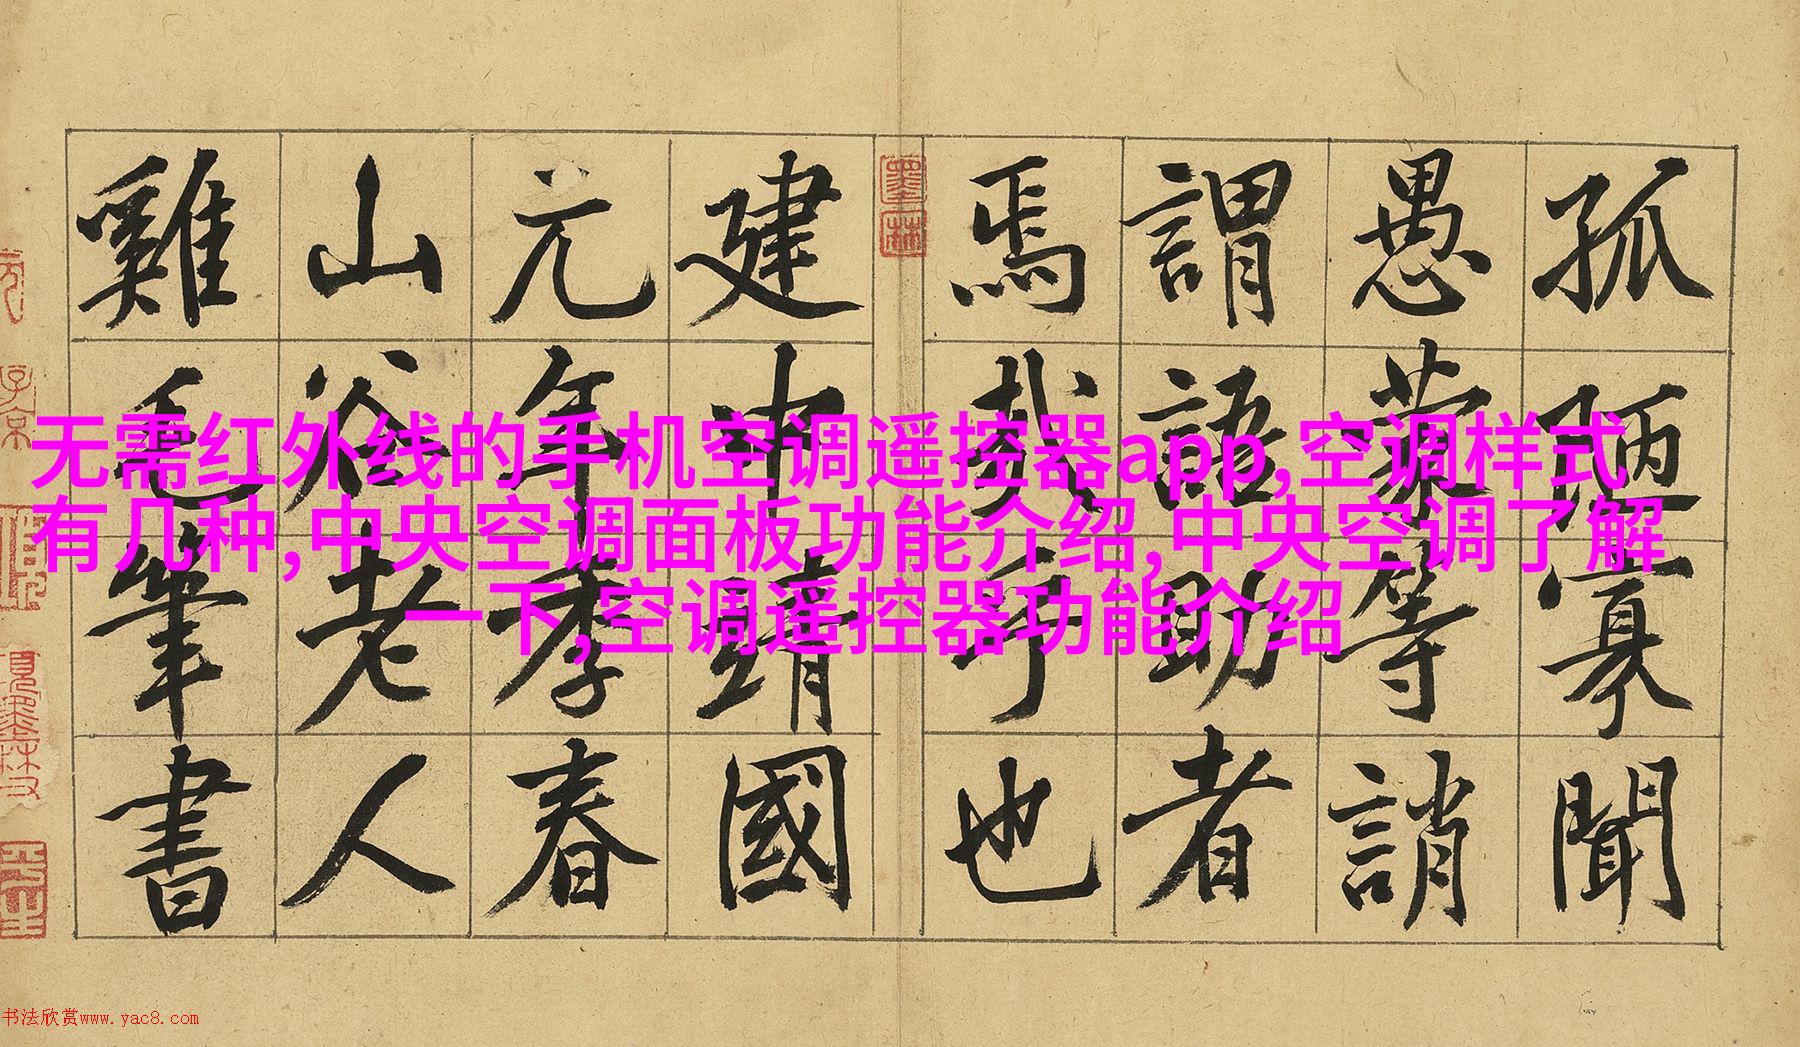 无需红外线的手机空调遥控器app,空调样式
有几种,中央空调面板功能介绍,中央空调了解
一下,空调遥控器功能介绍
孤陋寡聞
愚蒙等誚
謂語助者
焉哉乎也
墨林
建中靖國
元年季春
山谷老人
雞毛筆書
子京
书法欣赏www.yac8.com